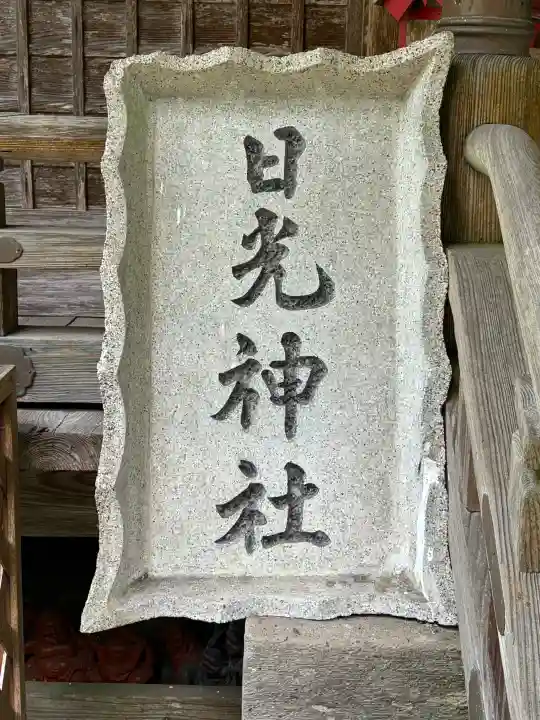 日光神社